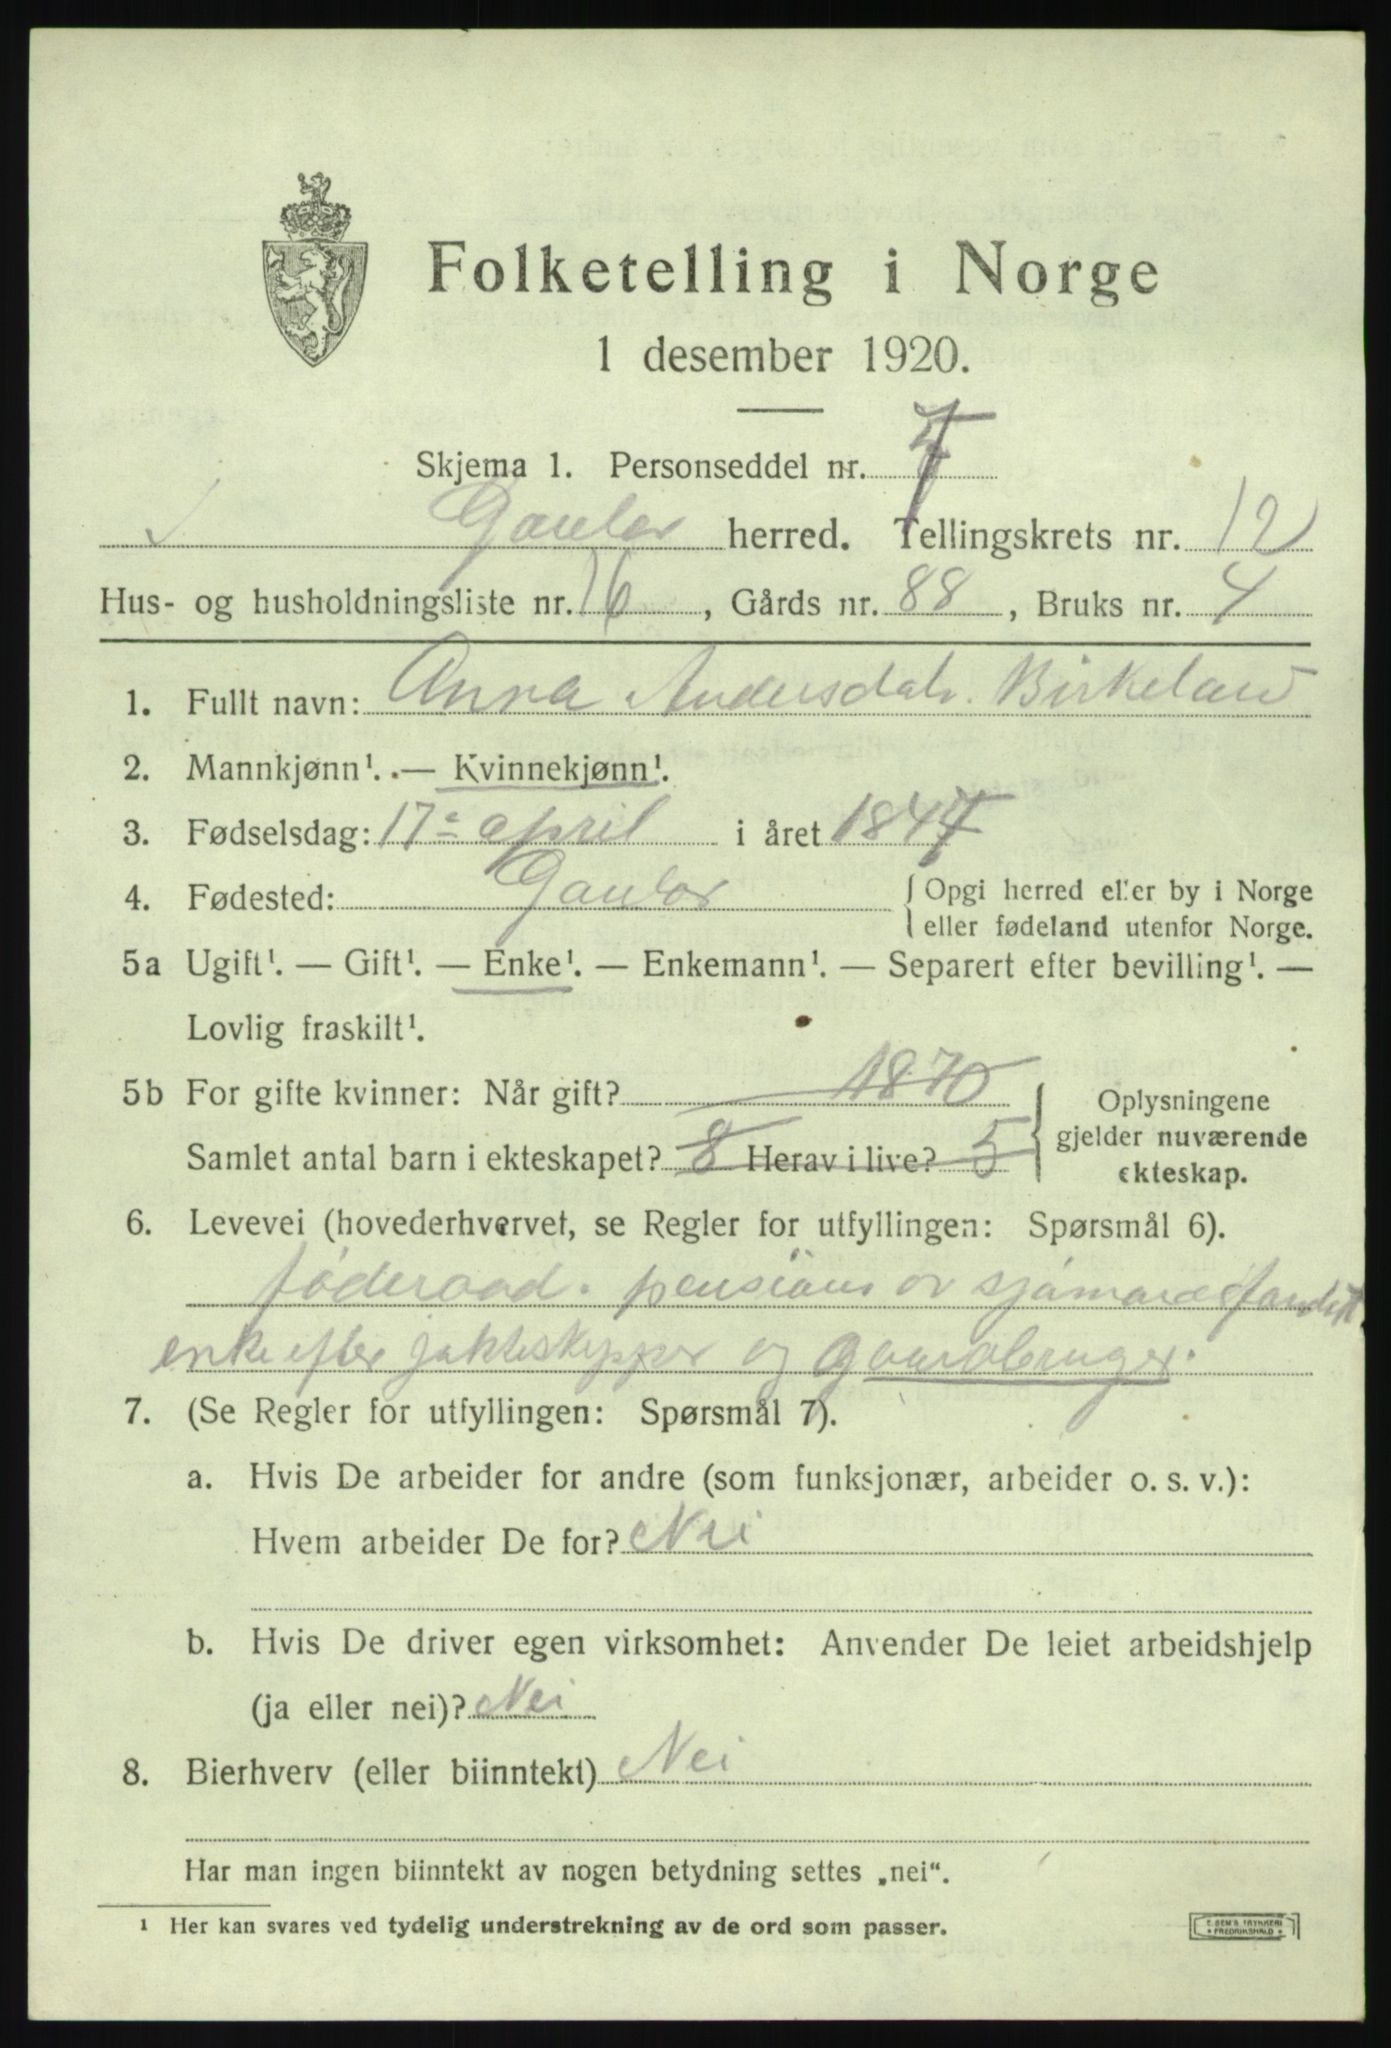 Folketelling i Norge
1 desember 1920.
Skjema 1. Personseddel nr. 7
Gaular herred. Tellingskrets nr. 12
Hus- og husholdningsliste nr. 16, Gårds nr. 88, Bruks nr. 4
1. Fullt navn: Anna Andersdatr. Birkeland
2. Mannkjønn¹. — Kvinnekjønn¹.
3. Fødselsdag: 17 april i året 1847
4. Fødested: Gaular { Opgi herred eller by i Norge
eller fødeland utenfor Norge.
5a Ugift¹. — Gift¹. — Enke¹. — Enkemann¹. — Separert efter bevilling¹. —
Lovlig fraskilt¹.
5b For gifte kvinner: Når gift? 1870
Samlet antal barn i ekteskapet? 8 Herav i live? 5
Oplysningene
gjelder nuværende
ekteskap.
6. Levevei (hovederhvervet, se Regler for utfyllingen: Spørsmål 6).
føderaad. pensions av
enke efter jakteskipper og gaardbruger.
7. (Se Regler for utfyllingen: Spørsmål 7).
a. Hvis De arbeider for andre (som funksjonær, arbeider o. s. v.):
Hvem arbeider De for? Nei
b. Hvis De driver egen virksomhet: Anvender De leiet arbeidshjelp
(ja eller nei)? Nei
8. Bierhverv (eller biinntekt) Nei
Har man ingen biinntekt av nogen betydning settes „nei“.
¹ Her kan svares ved tydelig understrekning av de ord som passer.
E. SEM'S TRYKKERI
FREDRIKSHALD